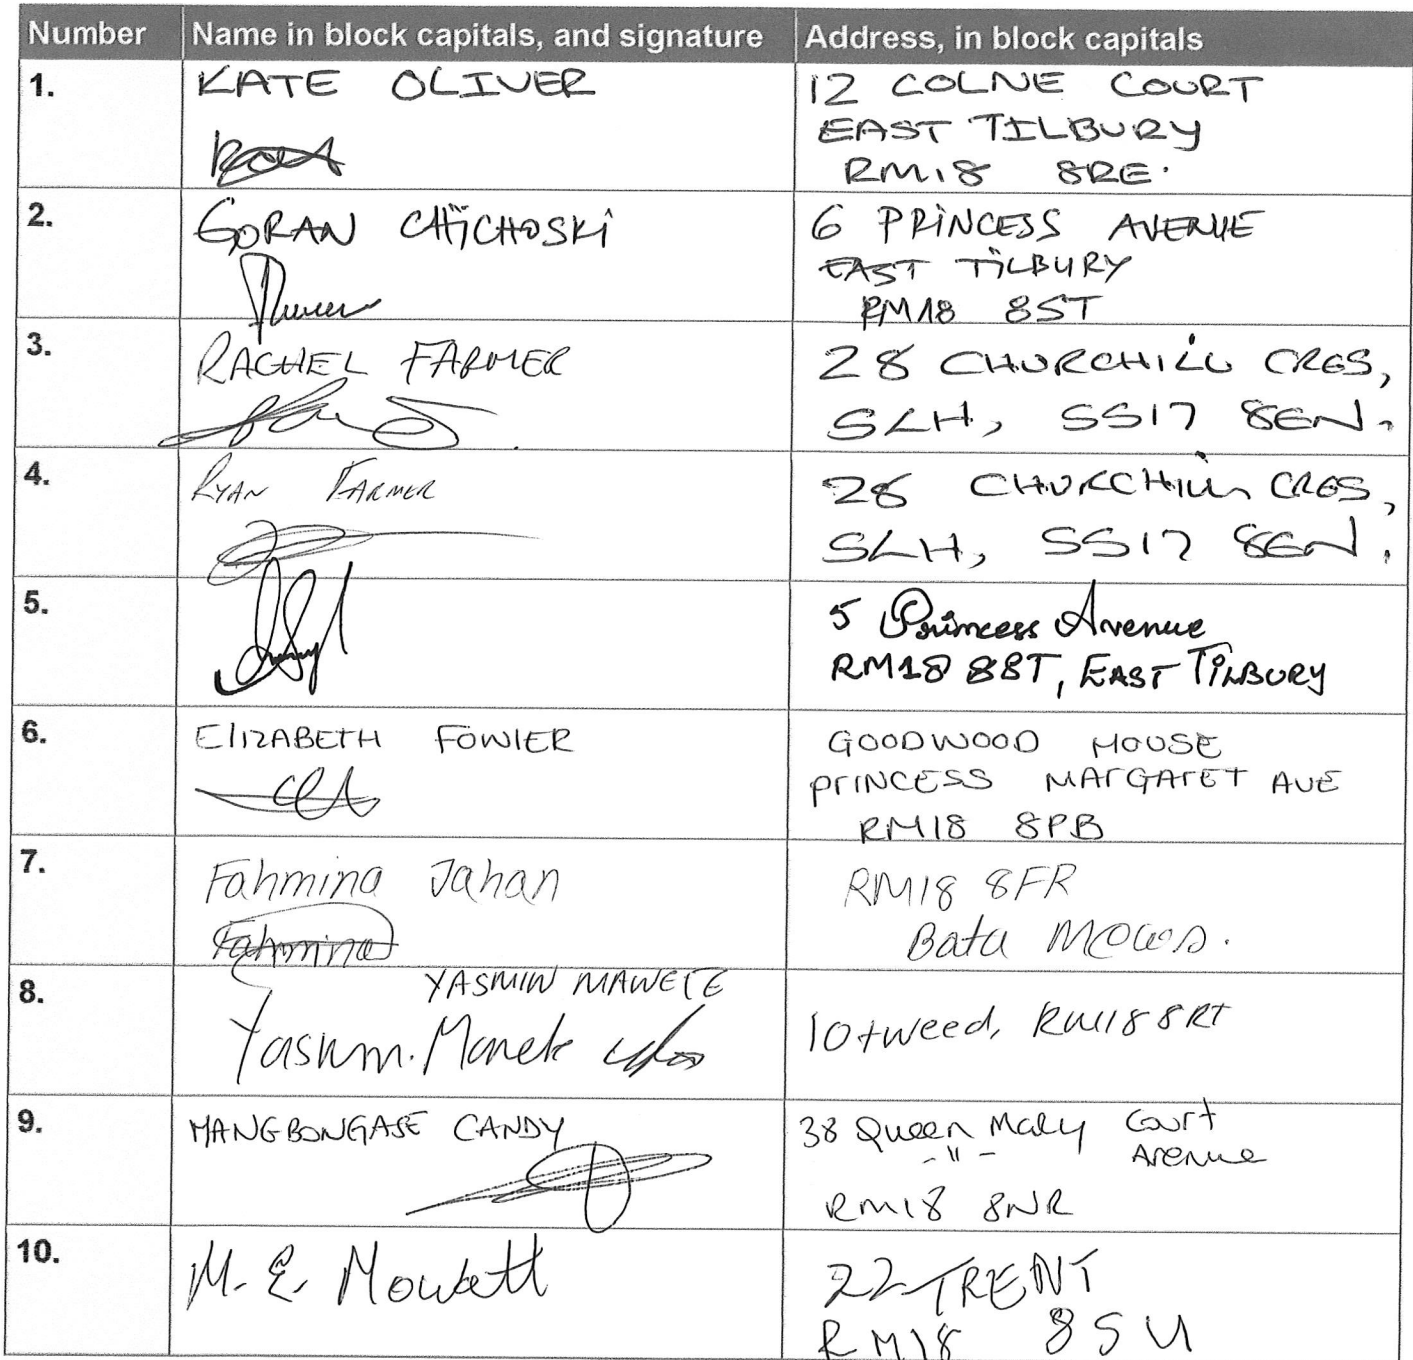 Number Name in block capitals, and signature Address, in block capitals
1. KATE OLIVER 12 COLNE COURT
EAST TILBURY
RM18 8RE.
2. GORAN CHICHOSKI 6 PRINCESS AVENUE
EAST TILBURY
RM18 8ST
3. RACHEL FARMER 28 CHURCHILL CRES,
SLH, SS17 8EN.
4. RYAN FARMER 28 CHURCHILL CRES,
SLH, SS17 8EN.
5. 5 Princess Avenue
RM18 8BT, EAST TILBURY
6. ElIZABETH FOWlER GOODWOOD HOUSE
PrINCESS MArGArET AVE
RM18 8PB
7. Fahmina Jahan RM18 8FR
Fahmina Bata
8. YASMIN MAWETE
10 tweed, RM18 8RT
9. MANGBONGASE CANDY 38 Queen Mary Court
-"- Avenue
RM18 8NR
10. M. E. Mowatt 22 TRENT
RM18 8SU